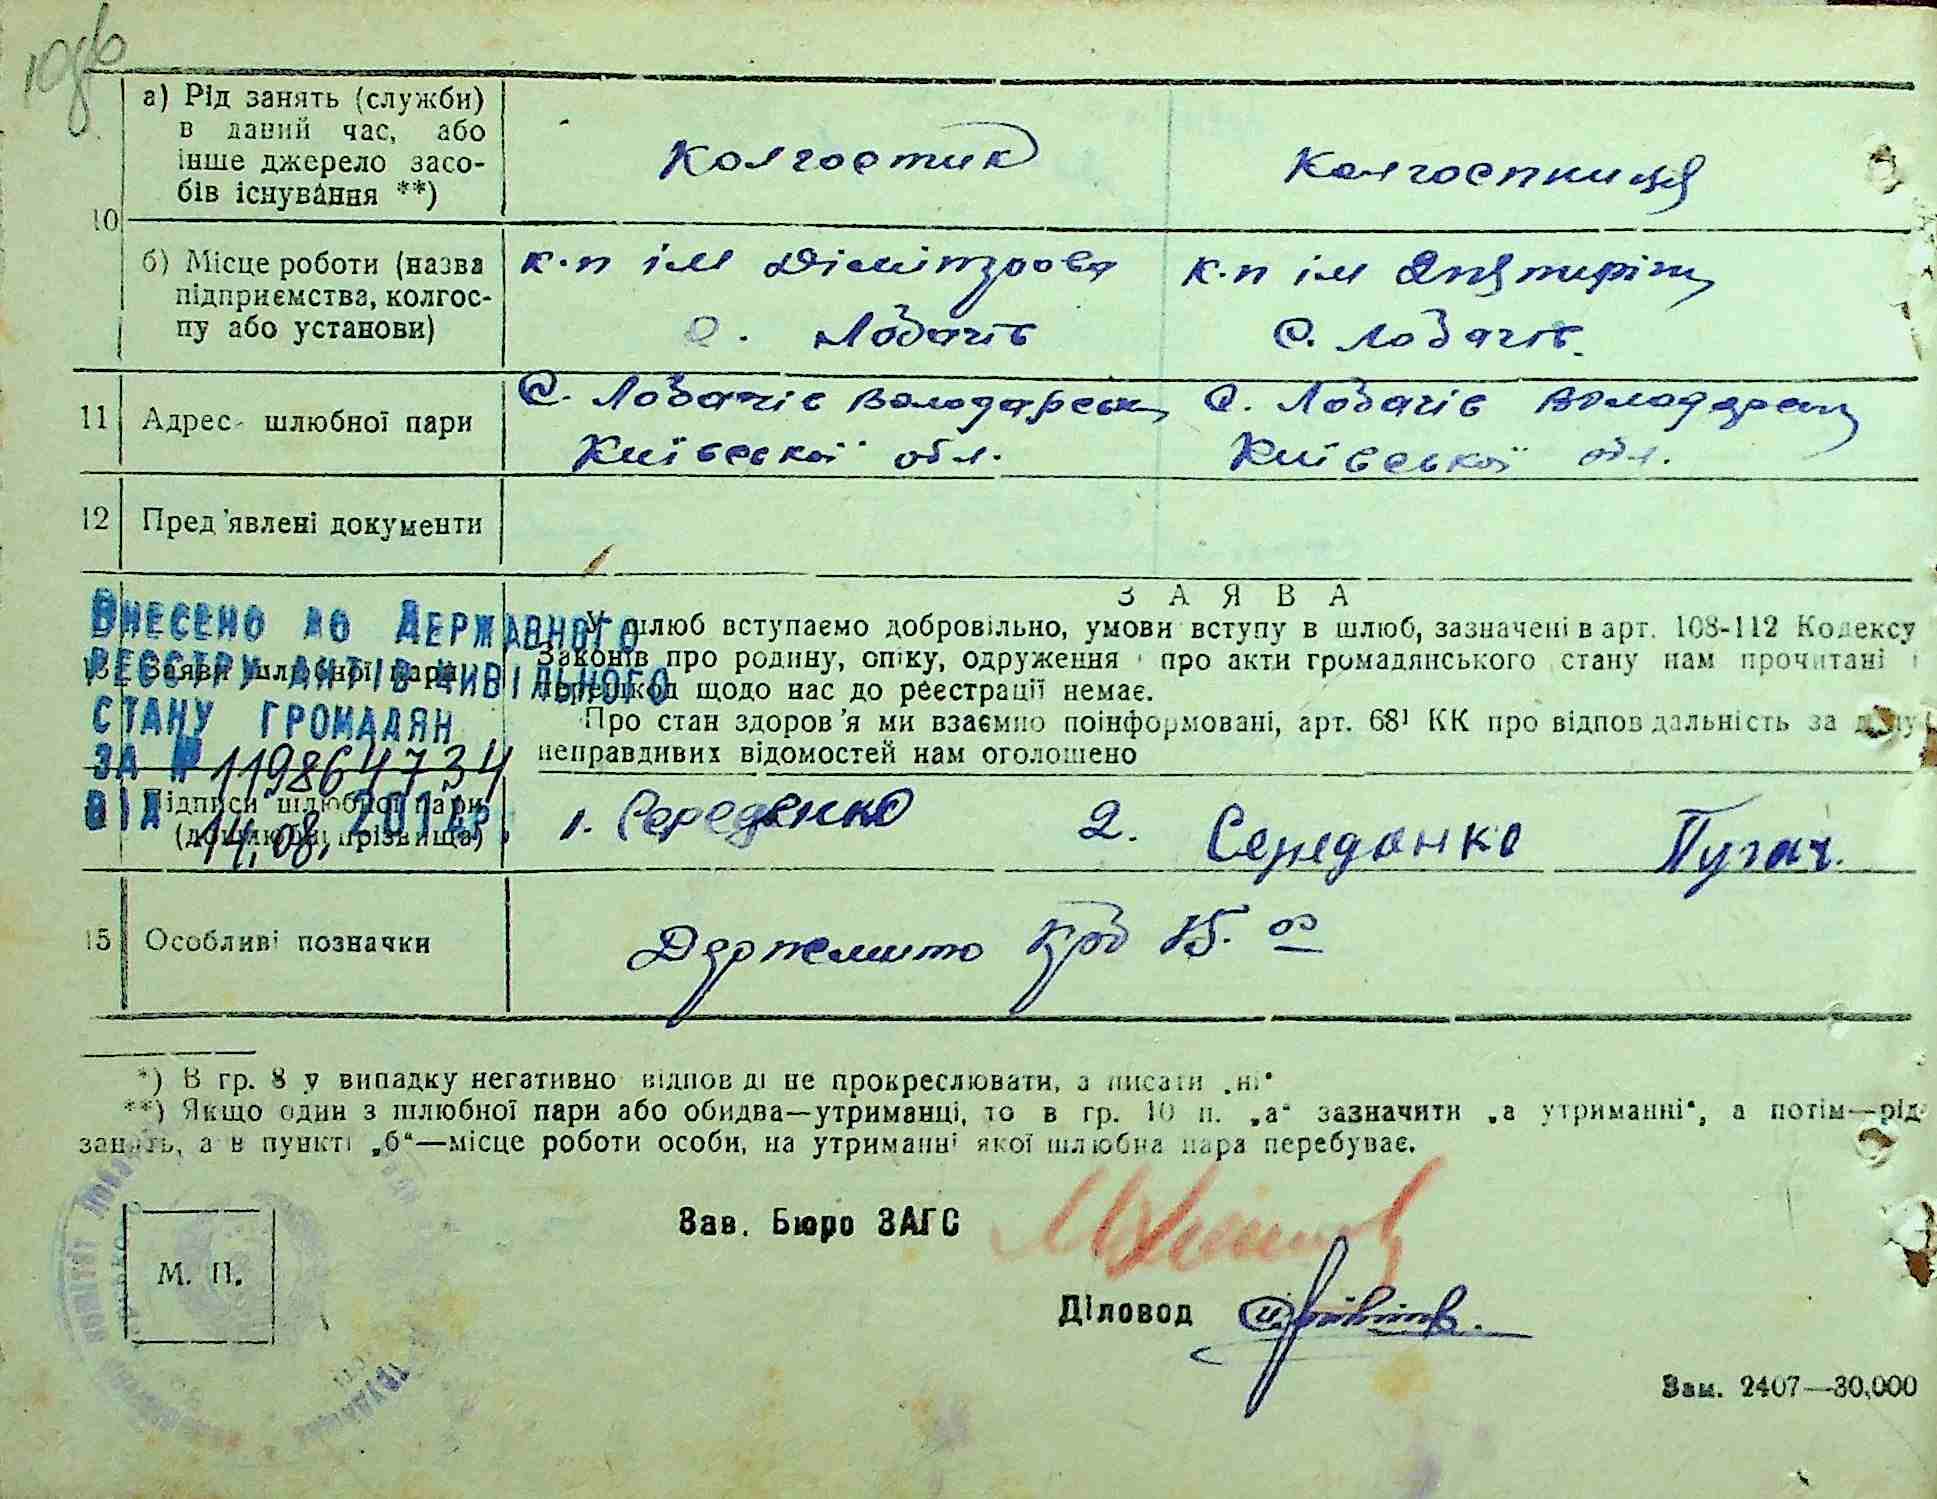 10
а) Рід занять (служби)
в даний час, або
інше джерело засо-
бів існування **)
Колгостик
Колгоспниця
б) Місце роботи (назва
підприємства, колгос-
пу або установи)
к-п ім Дімітрова
с. Лобачів
к-п ім
с. Лобачів.
11
Адрес шлюбної пари
с. Лобачів Володарськ
Київської обл.
с. Лобачів Володарськ
Київської обл.
12
Пред'явлені документи
ВНЕСЕНО ДО ДЕРЖАВНОГО
РЕЄСТРУ АКТІВ ЦИВІЛЬНОГО
СТАНУ ГРОМАДЯН
ЗА № 119864734
ВІД 14.08. 2014р.
Заяви шлюбної пари
ЗАЯВА
У шлюб вступаємо добровільно, умови вступу в шлюб, зазначені в арт. 108-112 Кодексу
Законів про родину, опіку, одруження про акти громадянського стану нам прочитані і
перешкод щодо нас до реєстрації немає.
Про стан здоров'я ми взаємно поінформовані, арт. 68¹ КК про відповідальність за дачу
неправдивих відомостей нам оголошено
Підписи шлюбної пари
(дошлюбні прізвища)
1. Середенко
2. Середенко Пугач.
15
Особливі позначки
Держмито крб 15.
*) В гр. 8 у випадку негативно відповіді не прокреслювати, а писати „ні“
**) Якщо один з шлюбної пари або обидва—утриманці, то в гр. 10 п. „а“ зазначити „а утриманні“, а потім—рід
занять, а в пункті „б“—місце роботи особи, на утриманні якої шлюбна пара перебуває.
Зав. Бюро ЗАГС
М. П.
Діловод
Зам. 2407—30,000